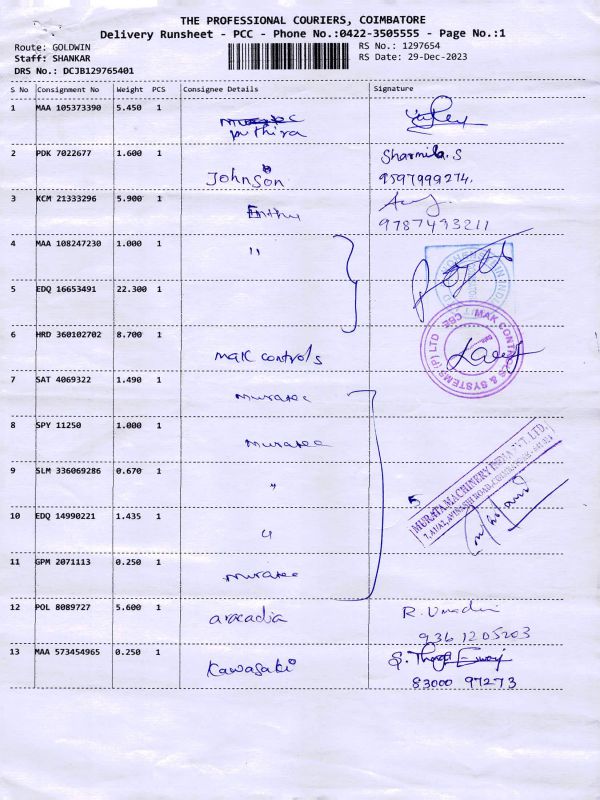 THE PROFESSIONAL COURIERS, COIMBATORE
Delivery Runsheet - PCC - Phone No.:0422-3505555 - Page No.:1
Route: GOLDWIN RS No.: 1297654
Staff: SHANKAR RS Date: 29-Dec-2023
DRS No.: DCJB129765401
S No Consignment No Weight PCS Consignee Details Signature
1 MAA 105373390 5.450 1
puthiya
2 PDK 7022677 1.600 1 Sharmila. S
Johnson 9597999274.
3 KCM 21333296 5.900 1
Enthu 9787493211
4 MAA 108247230 1.000 1 "
5 EDQ 16653491 22.300 1
6 HRD 360102702 8.700 1
mak controls
MAK CONTROLS & SYSTEMS (P) LTD CBE
7 SAT 4069322 1.490 1
muratec
8 SPY 11250 1.000 1
muratec
9 SLM 336069286 0.670 1 "
5
MURATA MACHINERY INDIA PVT. LTD.
10 EDQ 14990221 1.435 1 "
11 GPM 2071113 0.250 1
muratec
12 POL 8089727 5.600 1
aracadia R. Umadevi
936 1205203
13 MAA 573454965 0.250 1
Kawasaki
83000 97273